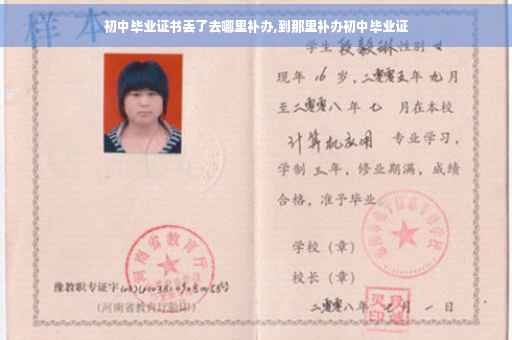 样本
初中毕业证书丢了去哪里补办,到那里补办初中毕业证
学生段毅琳性别女
现年16岁,二零零五年九月
至二零零八年七月在本校
计算机应用 专业学习,
学制三年,修业期满,成绩
合格,准予毕业
学校(章)
校长(章)
二零零八年 月一日
河南省教育厅
豫教职专证字
(河南省教育厅验印)